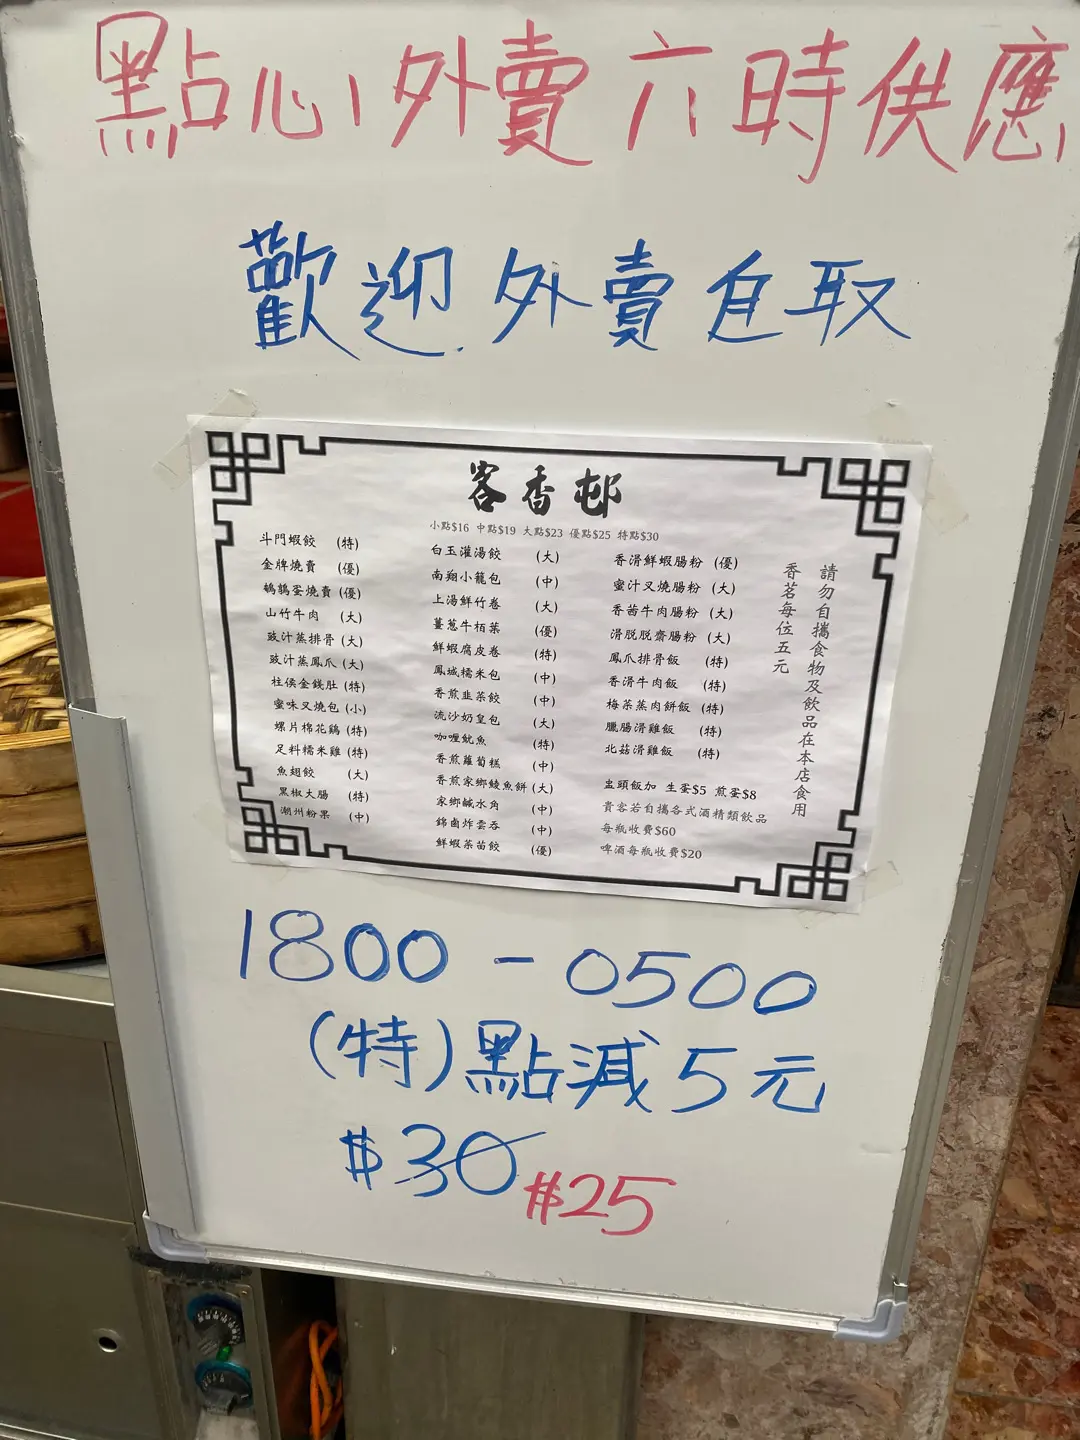 點心外賣六時供應
歡迎外賣自取
客香邨
小點$16 中點$19 大點$23 優點$25 特點$30
斗門蝦餃 (特)
金牌燒賣 (優)
鵪鶉蛋燒賣 (優)
山竹牛肉 (大)
豉汁蒸排骨 (大)
豉汁蒸鳳爪 (大)
柱侯金錢肚 (特)
蜜味叉燒包 (小)
螺片棉花鷄 (特)
足料糯米雞 (特)
魚翅餃 (大)
黑椒大腸 (特)
潮州粉果 (中)
白玉灌湯餃 (大)
南翔小籠包 (中)
上湯鮮竹卷 (大)
薑葱牛栢葉 (優)
鮮蝦腐皮卷 (特)
鳳城糯米包 (中)
香煎韭菜餃 (中)
流沙奶皇包 (大)
咖喱魷魚 (特)
香煎蘿蔔糕 (中)
香煎家鄉鯪魚餅 (大)
家鄉鹹水角 (中)
錦鹵炸雲吞 (中)
鮮蝦菜苗餃 (優)
香滑鮮蝦腸粉 (優)
蜜汁叉燒腸粉 (大)
香茜牛肉腸粉 (大)
滑脱脱齋腸粉 (大)
鳳爪排骨飯 (特)
香滑牛肉飯 (特)
梅菜蒸肉餅飯 (特)
臘腸滑雞飯 (特)
北菇滑雞飯 (特)
盅頭飯加 生蛋$5 煎蛋$8
貴客若自攜各式酒精類飲品
每瓶收費$60
啤酒每瓶收費$20
請勿自攜食物及飲品在本店食用
香茗每位五元
1800-0500
(特)點減5元
$30 $25